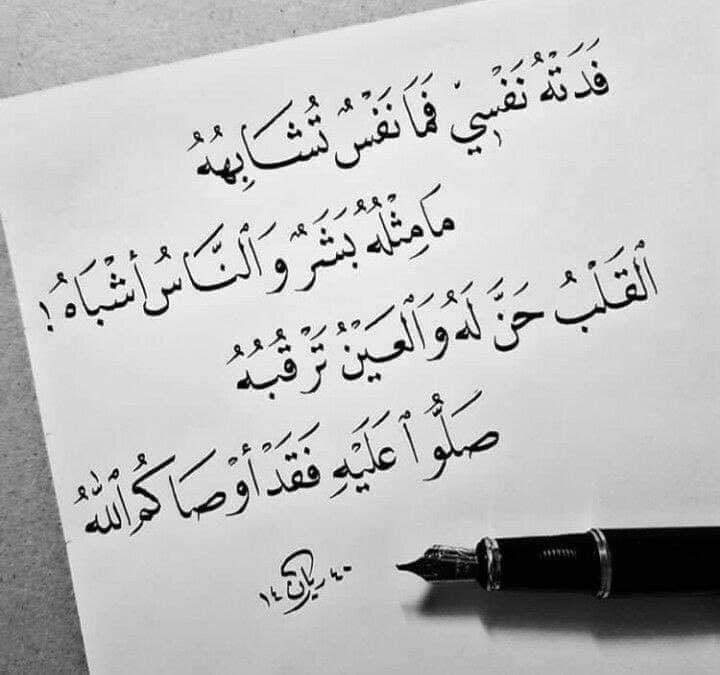 فَدَتْهُ نَفْسِي فَمَا نَفْسٌ تُشَابِهُهُ
مَا مِثْلُهُ بَشَرٌ وَٱلنَّاسُ أَشْبَاهُ !
ٱلقَلْبُ حَنَّ لَهُ وَٱلعَيْنُ تَرْقُبُهُ
صَلُّوا عَلَيْهِ فَقَدْ أَوْصَاكُمُ ٱللّٰهُ
ريان ١٤٤٠